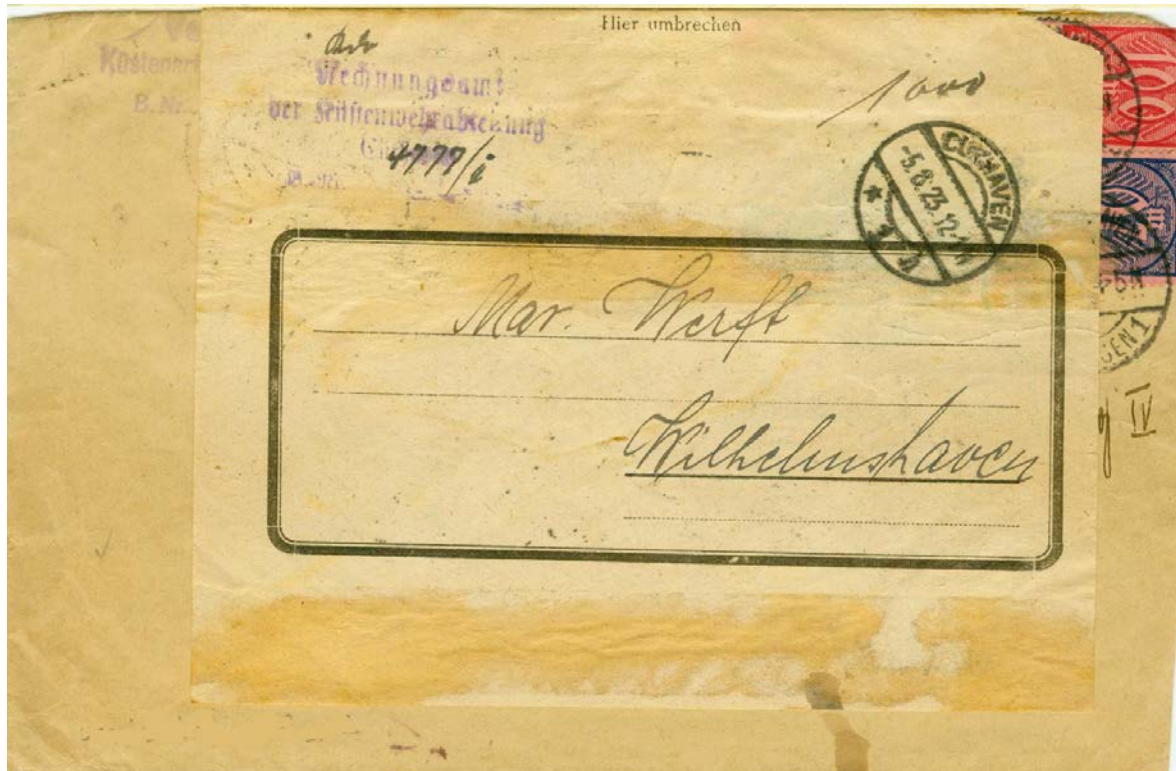 Hier umbrechen
B. Nr.
1000
Rechnungsamt
der Küstenwehrabteilung
4777/i
CUXHAVEN
-5.8.23.12-1N
Mar. Werft
Wilhelmshaven
IV